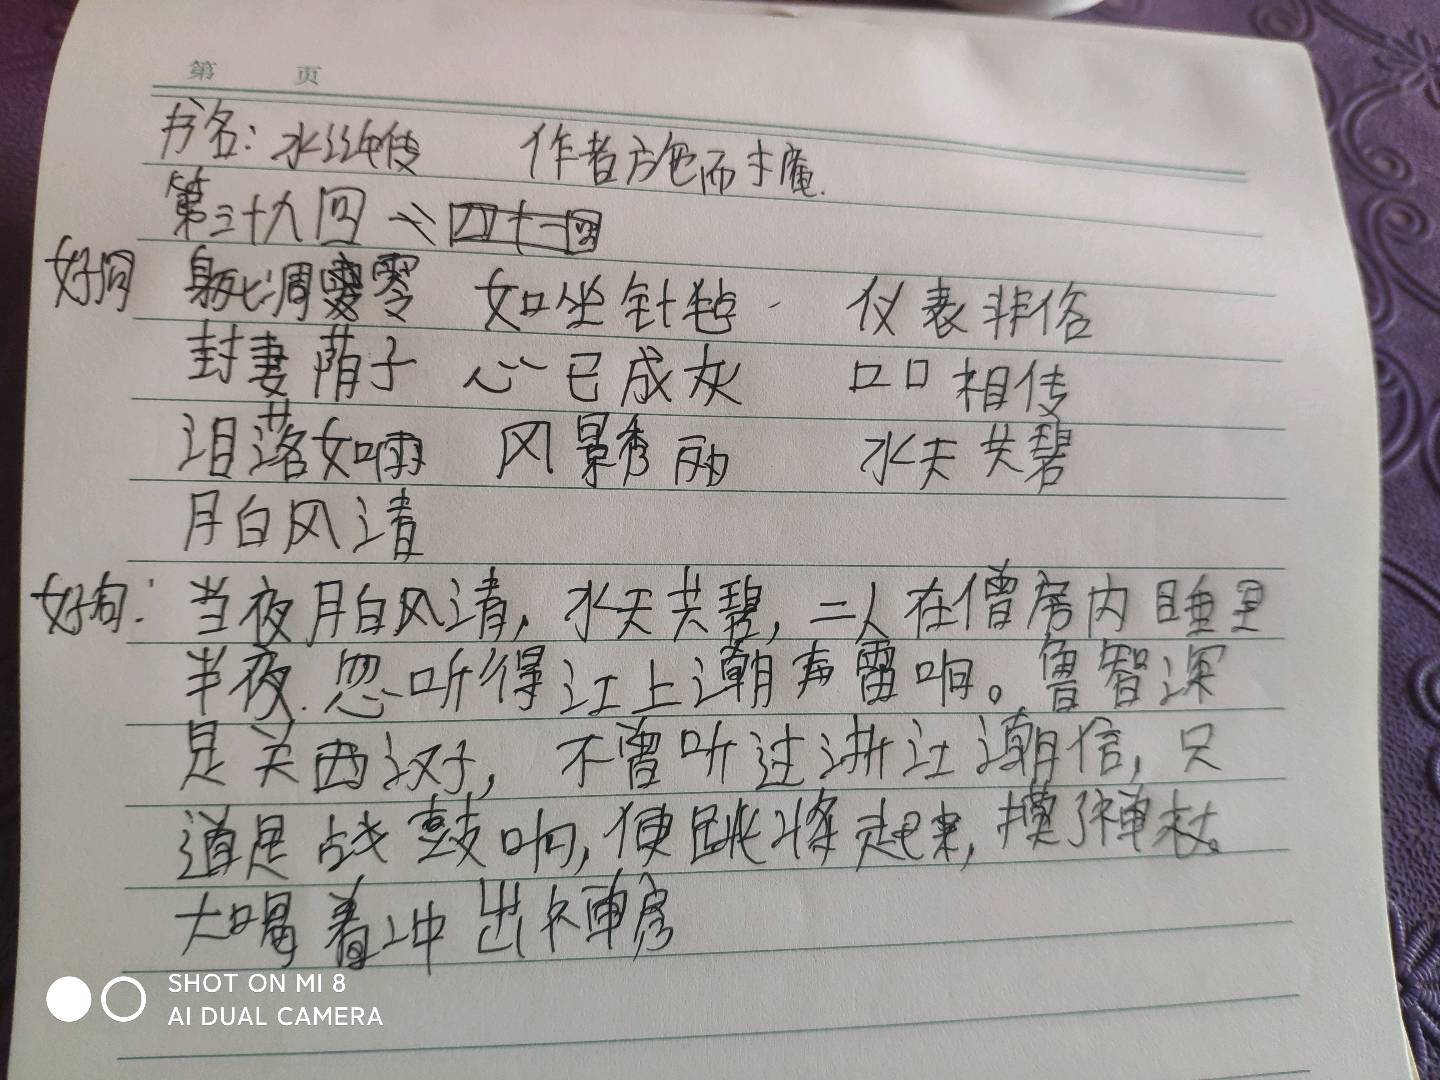 第 页
书名：水浒传 作者施耐庵.
第三十九回 ~ 四十一回
好词 凋零 如坐针毡 仪表非俗
封妻荫子 心已成灰 口口相传
泪落如雨 风景秀丽 水天共碧
月白风清
好句：当夜月白风清，水天共碧，二人在僧房内睡里
半夜.忽听得江上潮声雷响。鲁智深
是关西汉子，不曾听过浙江潮信，只
道是战鼓响，便跳将起来，摸了禅杖。
大喝着冲出禅房
SHOT ON MI 8
AI DUAL CAMERA